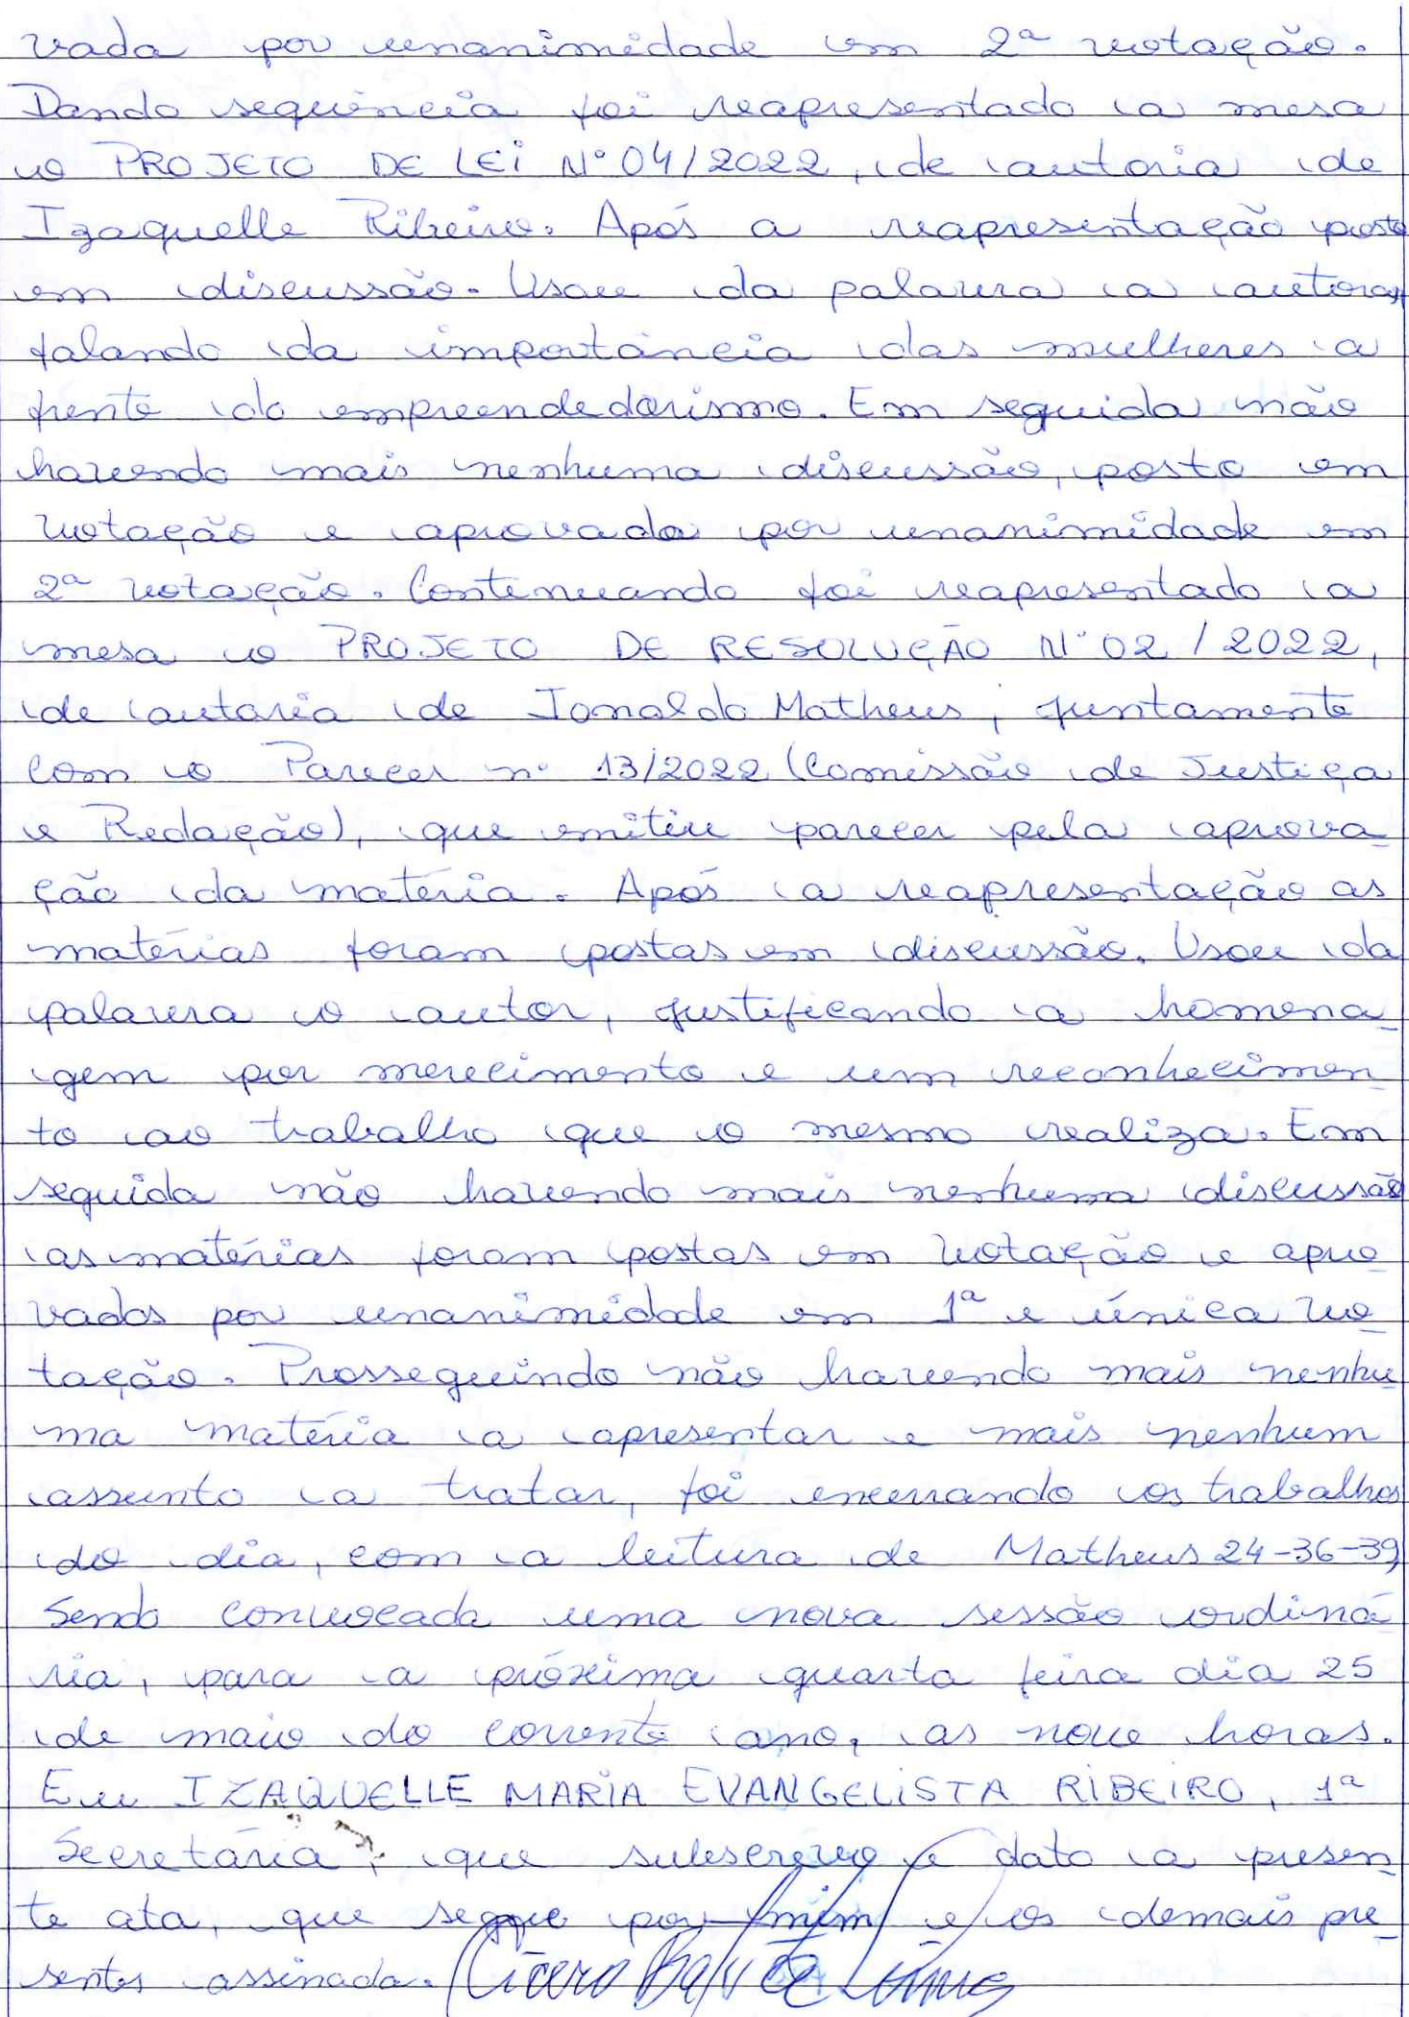 vada por unanimidade em 2ª votação.
Dando sequência foi reapresentado a mesa
o PROJETO DE LEI Nº 04/2022, de autoria de
Izaquelle Ribeiro. Após a reapresentação posto
em discussão. Usou da palavra a autora,
falando da importância das mulheres a
frente do empreendedorismo. Em seguida não
havendo mais nenhuma discussão, posto em
votação e aprovado por unanimidade em
2ª votação. Continuando foi reapresentado a
mesa o PROJETO DE RESOLUÇÃO Nº 02/2022,
de autoria de Jonaldo Matheus, juntamente
com o Parecer nº 13/2022 (Comissão de Justiça
e Redação), que emitiu parecer pela aprova-
ção da matéria. Após a reapresentação as
matérias foram postas em discussão. Usou da
palavra o autor, justificando a homena-
gem por merecimento e um reconhecimen-
to ao trabalho que o mesmo realiza. Em
seguida não havendo mais nenhuma discussão
as matérias foram postas em votação e apro-
vadas por unanimidade em 1ª e única vo-
tação. Prosseguindo não havendo mais nenhu-
ma matéria a apresentar e mais nenhum
assunto a tratar, foi encerrando os trabalhos
do dia, com a leitura de Matheus 24-36-39
Sendo convocada uma nova sessão ordiná-
ria, para a próxima quarta feira dia 25
de maio do corrente ano, as nove horas.
Eu IZAQUELLE MARIA EVANGELISTA RIBEIRO, 1ª
Secretária, que subscrevo e dato a presen-
te ata, que segue por mim e os demais pre-
sentes assinada. Cícero